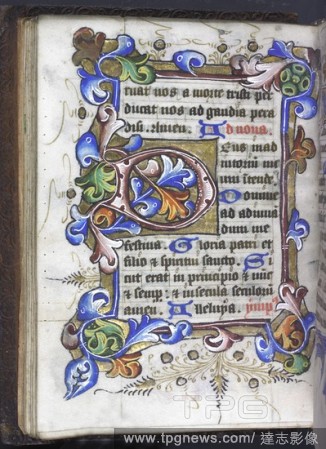 ruat nos a morte trist per
ducat nos ad gaudia para
disi. Amen. Ad nona.
Deus in ad
iutoriu me
um intende.
Domine
ad adiuua
dum me
festina. Gloria patri et
filio et spiritui sancto. Si
cut erat in principio et nuc
et semp: et in secula seculoru
amen. Alleluya.
TPG
www.tpgnews.com/ 達志影像